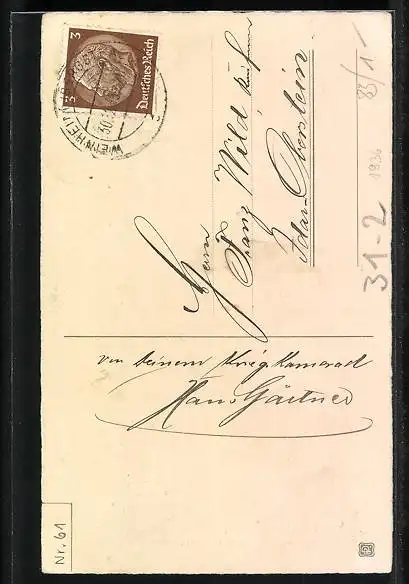 Deutsches Reich
3 3
WEINHEIM
30.
Herrn
Franz Wild
Idar-Oberstein
von deinem Kriegskamerad
Hans Gärtner
31-2
1936
83/1-
Nr. 61